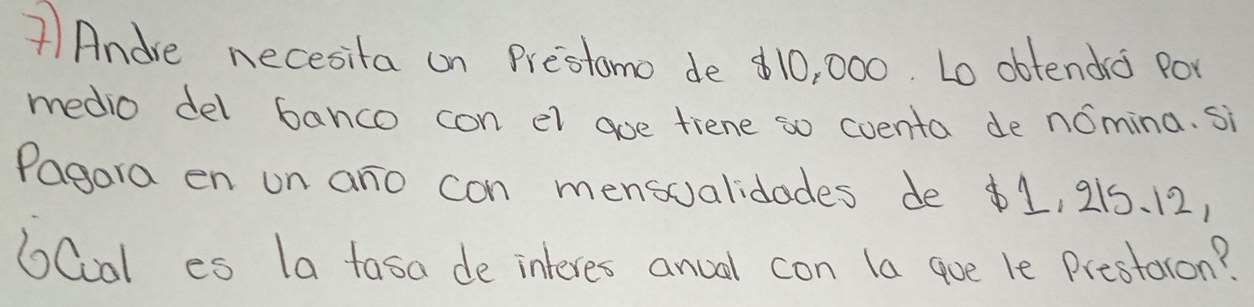 7) Andre necesita un Préstamo de $10,000. Lo obtendrá por
medio del banco con el que tiene su cuenta de nómina. Si
Pagara en un año con mensualidades de $1,215.12,
¿Cual es la tasa de interes anual con la que le Prestaron?